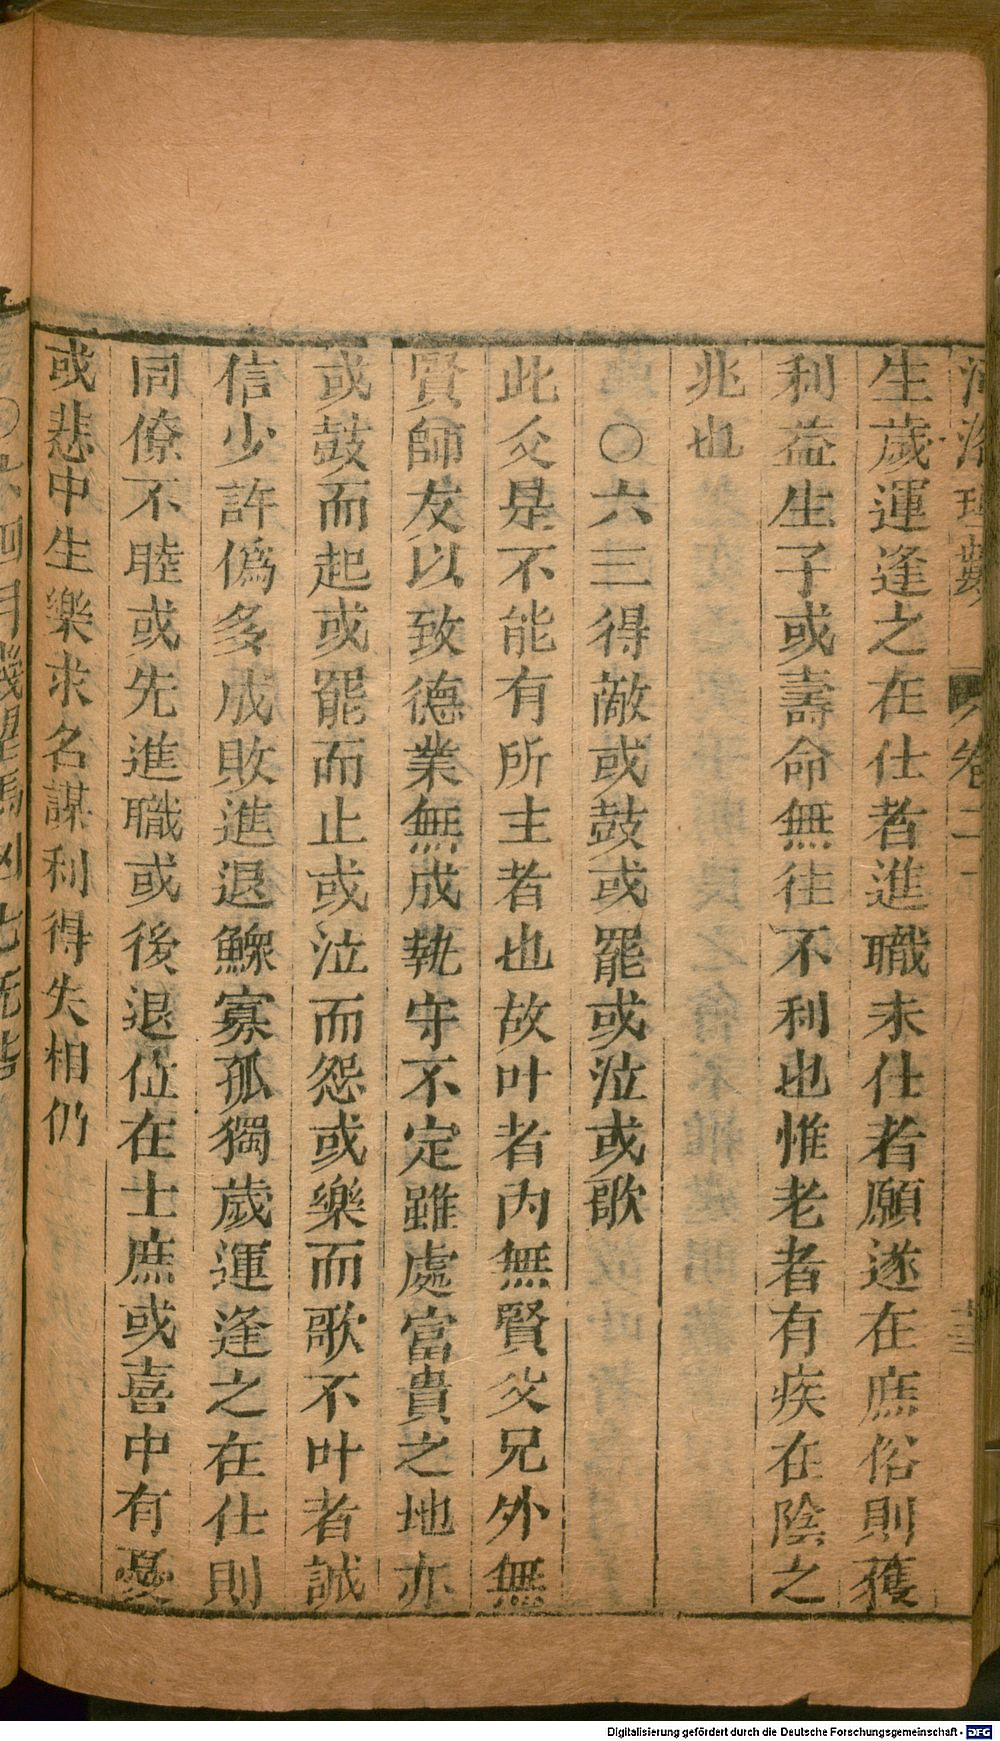 生歲運逢之在仕者進職未仕者願遂在庶俗則獲
利益生子或壽命無往不利也惟老者有疾在陰之
兆也
○六三得敵或鼓或罷或泣或歌
此爻是不能有所主者也故叶者内無賢父兄外無
賢師友以致德業無成執守不定雖處富貴之地亦
或鼓而起或罷而止或泣而怨或樂而歌不叶者誠
信少許偽多成敗進退鰥寡孤獨歲運逢之在仕則
同僚不睦或先進職或後退位在士庶或喜中有憂
或悲中生樂求名謀利得失相仍
Digitalisierung gefördert durch die Deutsche Forschungsgemeinschaft - DFG